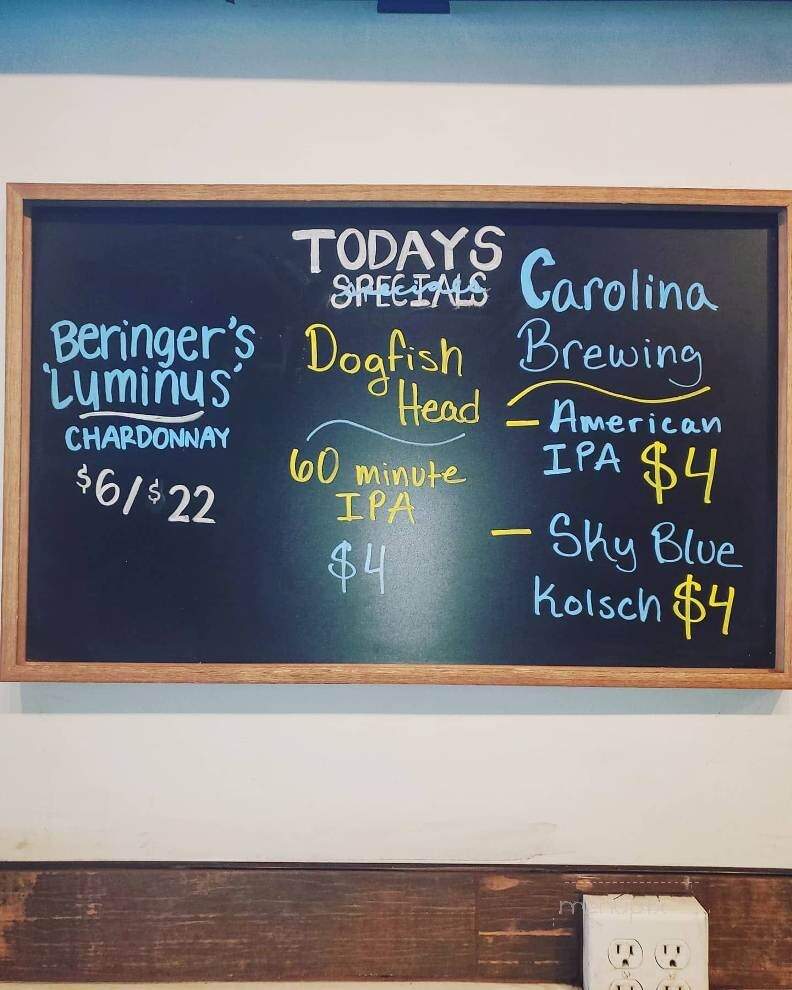 TODAYS
SPECIALS
Beringer's
'Luminus'
CHARDONNAY
$6/$22
Dogfish
Head
60 minute
IPA
$4
Carolina
Brewing
- American
IPA $4
- Sky Blue
Kolsch $4
menupix